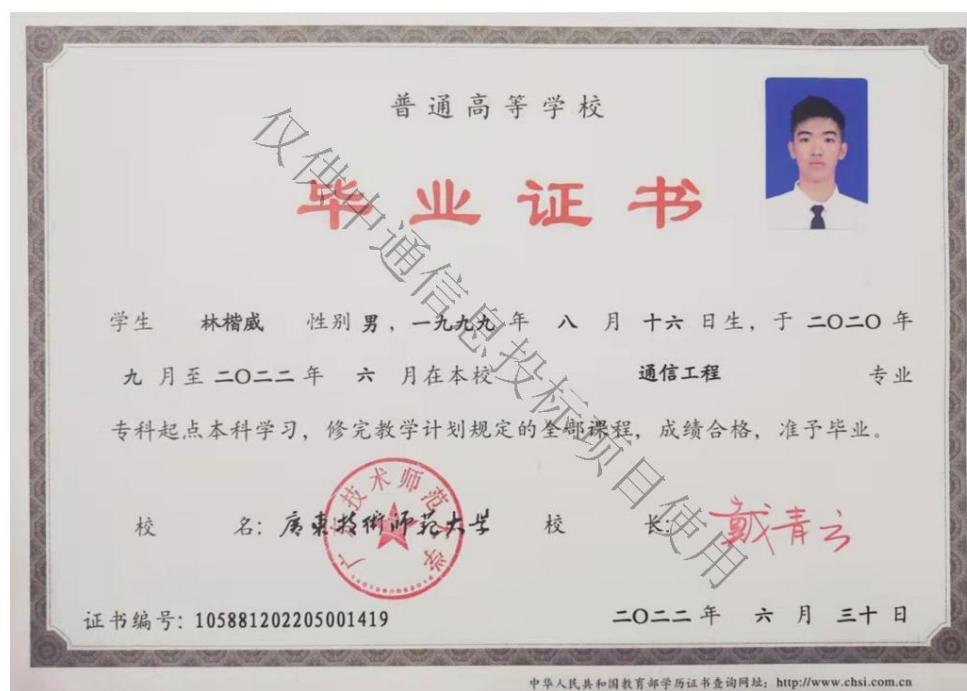 普通高等学校
毕业证书
学生 林楷威 性别 男，一九九九 年 八 月 十六 日生，于 二〇二〇 年
九 月至 二〇二二 年 六 月在本校 通信工程 专业
专科起点本科学习，修完教学计划规定的全部课程，成绩合格，准予毕业。
校 名：廣東技術师范大学 校 长：戴青云
广东技术师范大学
证书编号：105881202205001419 二〇二二 年 六 月 三十 日
中华人民共和国教育部学历证书查询网址：http://www.chsi.com.cn
仅供中通信息投标项目使用